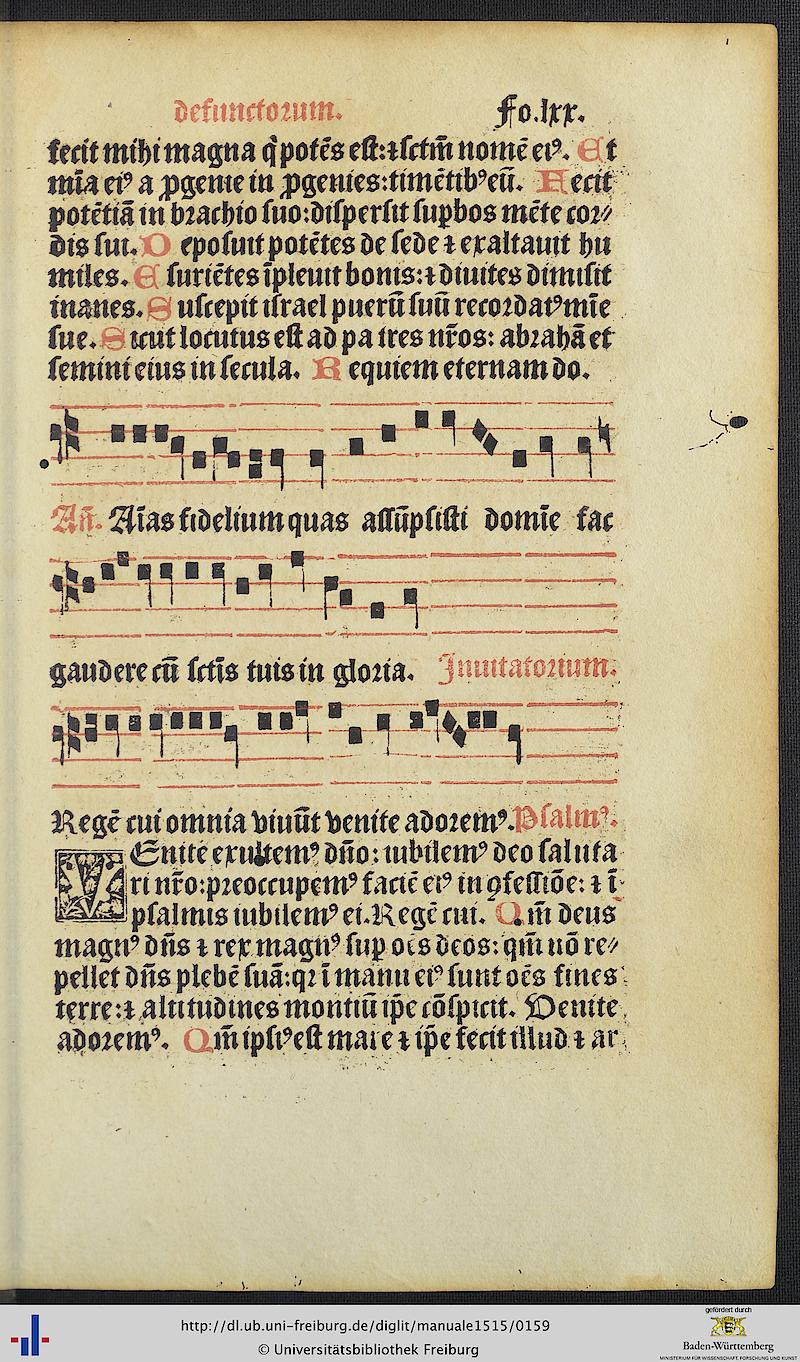 defunctorum. Fo.lxx.
fecit mihi magna q̇ potēs est:⁊ sctm̄ nomē eiꝰ. Et
mīa eiꝰ a ꝓgenie in ꝓgenies:timētibꝰ eū. Fecit
potētiā in brachio suo:dispersit suꝑbos mēte cor⸗
dis sui. Deposuit potētes de sede ⁊ exaltauit hu
miles. Esuriētes īpleuit bonis:⁊ diuites dimisit
inanes. Suscepit israel puerū suū recordatꝰ mīe
sue. Sicut locutus est ad pa tres nr̄os: abrahā et
semini eius in secula. Requiem eternam do.
Añ. Aīas fidelium quas assūpsisti domīe fac
gaudere cū sctīs tuis in gloria. Inuitatorium.
Regē cui omnia viuūt venite adoremꝰ. Psalmꝰ.
VEnite exultemꝰ dño: iubilemꝰ deo saluta
ri nr̄o:preoccupemꝰ faciē eiꝰ in ꝯfessiōe: ⁊ ī
psalmis iubilemꝰ ei. Regē cui. Qm̄ deus
magnꝰ dñs ⁊ rex magnꝰ suꝑ oēs deos: qm̄ nō re⸗
pellet dñs plebē suā:qꝛ ī manu eiꝰ sunt oēs fines
terre:⁊ altitudines montiū ip̄e cōspicit. Venite
adoremꝰ. Qm̄ ipsiꝰ est mare ⁊ ip̄e fecit illud ⁊ ar
http://dl.ub.uni-freiburg.de/diglit/manuale1515/0159
© Universitätsbibliothek Freiburg
gefördert durch
Baden-Württemberg
MINISTERIUM FÜR WISSENSCHAFT, FORSCHUNG UND KUNST